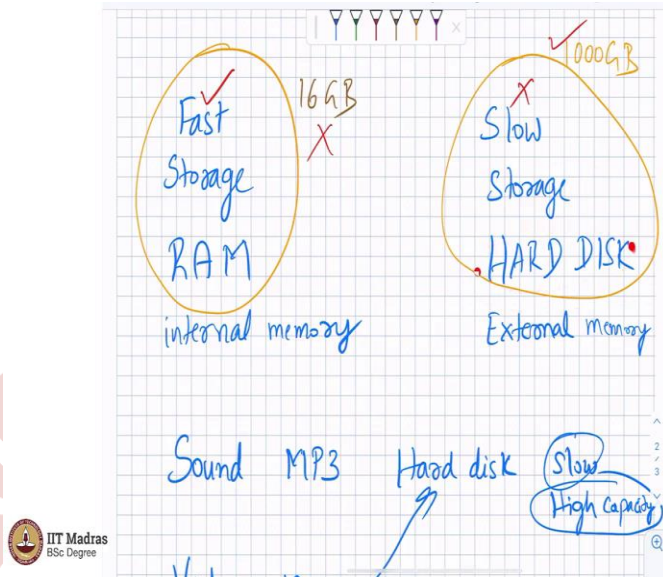 1000GB
16GB
Fast
Storage
RAM
internal memory
Slow
Storage
HARD DISK
External memory
Sound MP3 Hard disk Slow
High Capacity
2
/
3
IIT Madras
BSc Degree